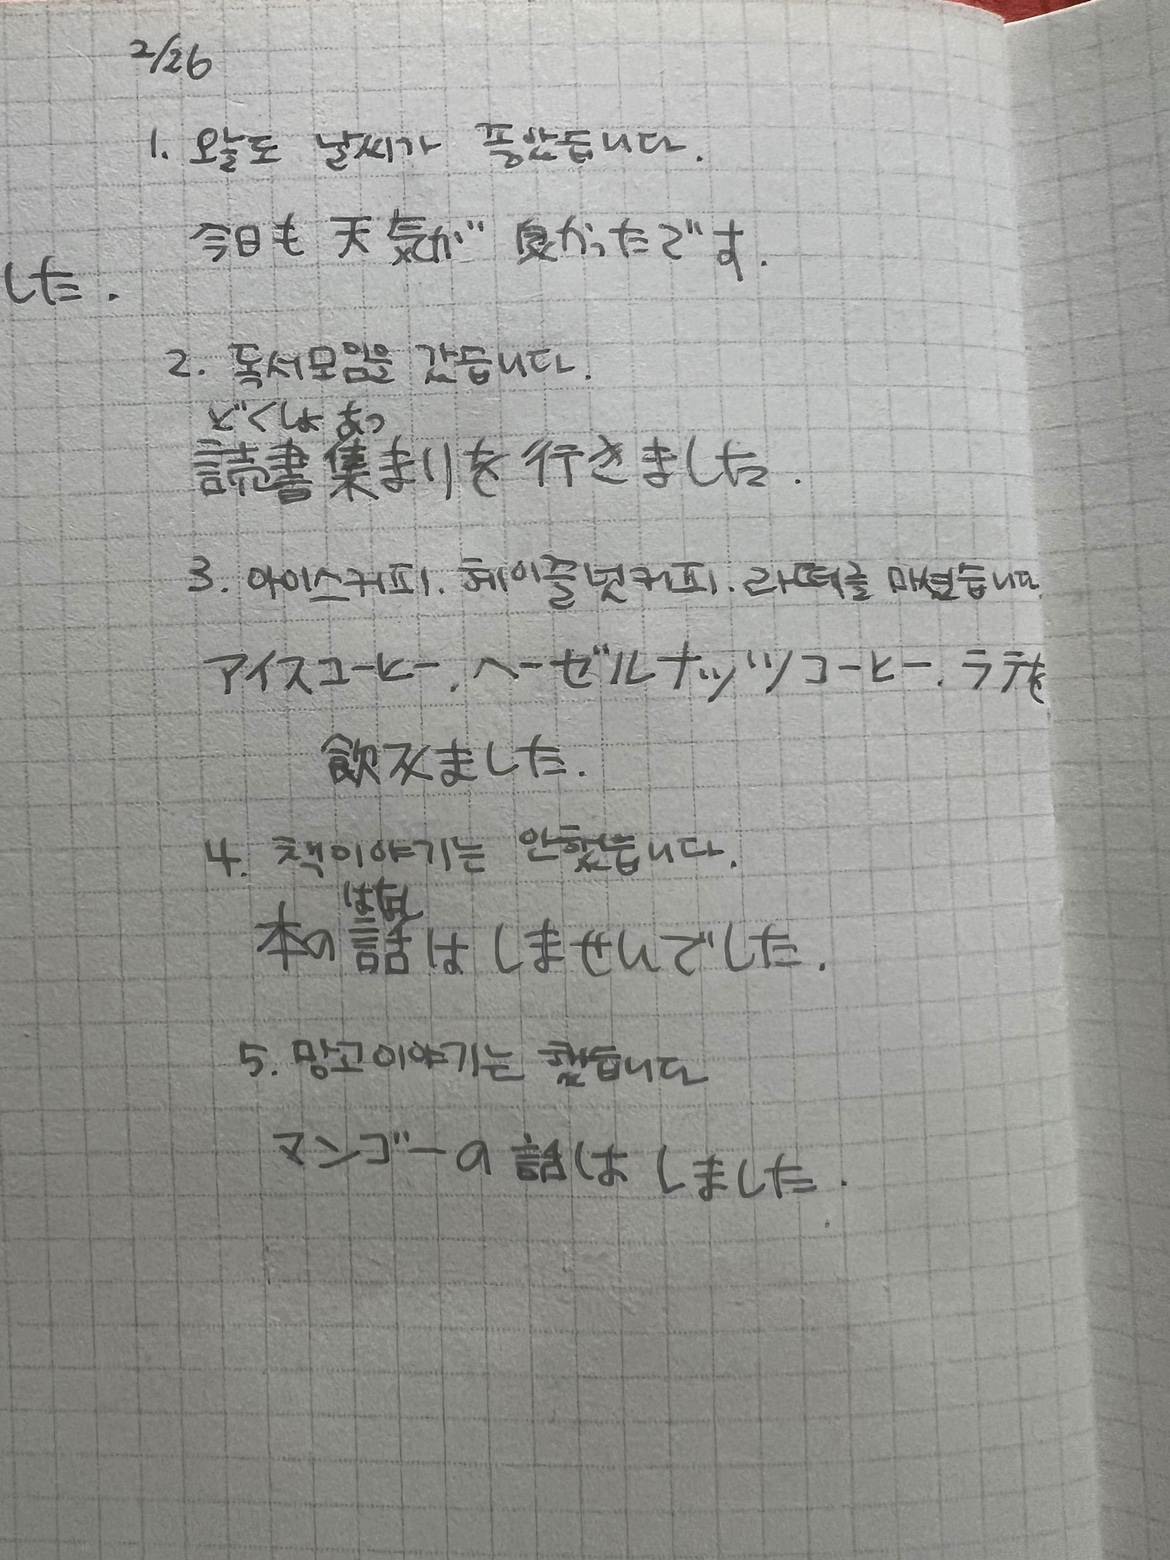 2/26
1. 오늘도 날씨가 좋았습니다.
今日も 天気が 良かったです.
した.
2. 독서모임을 갔습니다.
どくしょ あつ
読書集まりを 行きました.
3. 아이스커피. 헤이즐넛커피. 라떼를 마셨습니다.
アイスコーヒー. ヘーゼルナッツコーヒー. ラテを
飲みました.
4. 책이야기는 안했습니다.
はなし
本の話は しませんでした.
5. 망고이야기는 했습니다
マンゴーの 話は しました.